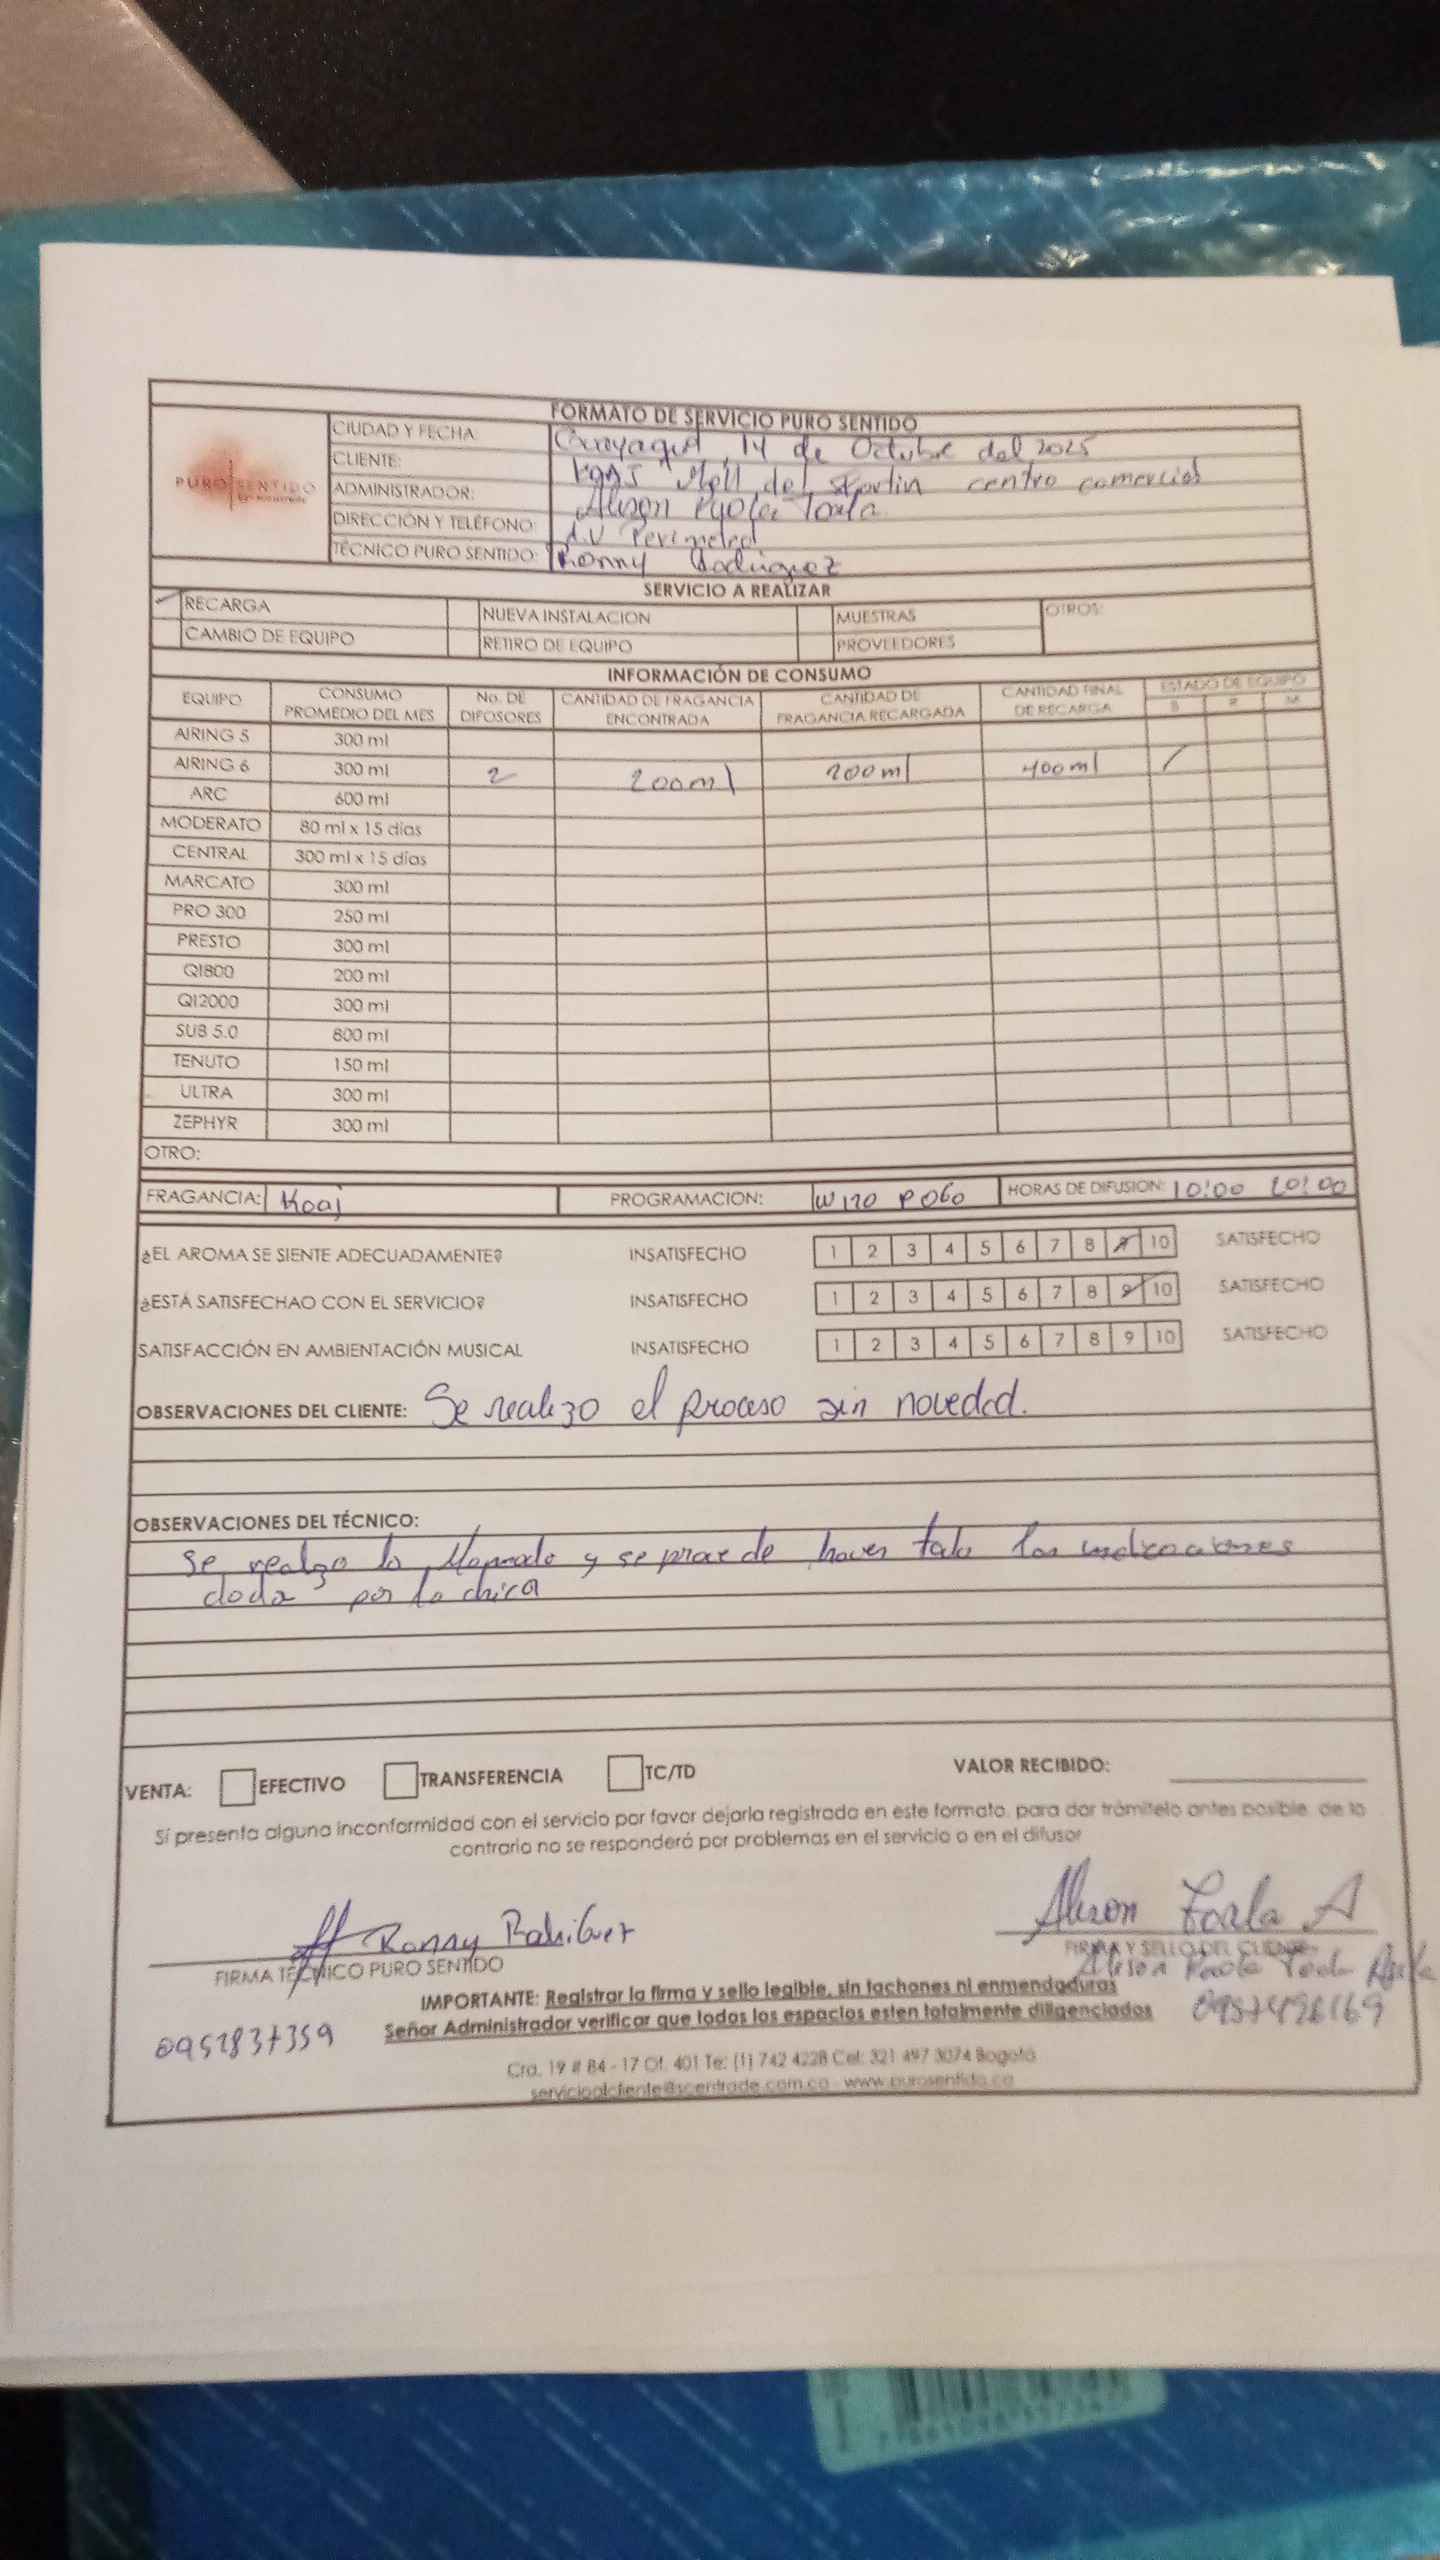 FORMATO DE SERVICIO PURO SENTIDO
PURO SENTIDO
CIUDAD Y FECHA: Guayaquil, 14 de Octubre del 2025
CLIENTE: Koaj Mall del centro comercial
ADMINISTRADOR: Alison Paola Toala
DIRECCIÓN Y TELÉFONO: A.V Perimetral
TÉCNICO PURO SENTIDO: Ronny Rodriguez
SERVICIO A REALIZAR
RECARGA NUEVA INSTALACION MUESTRAS OTROS:
CAMBIO DE EQUIPO RETIRO DE EQUIPO PROVEEDORES
INFORMACIÓN DE CONSUMO
EQUIPO CONSUMO PROMEDIO DEL MES No. DE DIFOSORES CANTIDAD DE FRAGANCIA ENCONTRADA CANTIDAD DE FRAGANCIA RECARGADA CANTIDAD FINAL DE RECARGA ESTADO DE EQUIPO
B R M
AIRING 5 300 ml
AIRING 6 300 ml 2 200ml 200ml 400ml /
ARC 600 ml
MODERATO 80 ml x 15 días
CENTRAL 300 ml x 15 días
MARCATO 300 ml
PRO 300 250 ml
PRESTO 300 ml
QI800 200 ml
QI2000 300 ml
SUB 5.0 800 ml
TENUTO 150 ml
ULTRA 300 ml
ZEPHYR 300 ml
OTRO:
FRAGANCIA: Koaj PROGRAMACION: W120 P060 HORAS DE DIFUSION: 10:00 20:00
¿EL AROMA SE SIENTE ADECUADAMENTE? INSATISFECHO 1 2 3 4 5 6 7 8 9 10 SATISFECHO
¿ESTÁ SATISFECHAO CON EL SERVICIO? INSATISFECHO 1 2 3 4 5 6 7 8 9 10 SATISFECHO
SATISFACCIÓN EN AMBIENTACIÓN MUSICAL INSATISFECHO 1 2 3 4 5 6 7 8 9 10 SATISFECHO
OBSERVACIONES DEL CLIENTE: Se realizo el proceso sin novedad.
OBSERVACIONES DEL TÉCNICO:
se realzo la llamada y se procede hacer toda las indicaciones
doda por la chica
VENTA: EFECTIVO TRANSFERENCIA TC/TD VALOR RECIBIDO:
Sí presenta alguna inconformidad con el servicio por favor dejarla registrada en este formato, para dar trámitelo antes posible, de lo
contrario no se responderá por problemas en el servicio o en el difusor
Ronny Rodriguez Alison Toala A
FIRMA TÉCNICO PURO SENTIDO FIRMA Y SELLO DEL CLIENTE
Alison Paola Toala
IMPORTANTE: Registrar la firma y sello legible, sin tachones ni enmendaduras
Señor Administrador verificar que todos los espacios esten totalmente diligenciados
0952837359 0957496169
Cra. 19 # 84 - 17 Of. 401 Te: (1) 742 4228 Cel: 321 497 3074 Bogotá
servicioalcliente@scentrade.com.co - www.purosentido.co